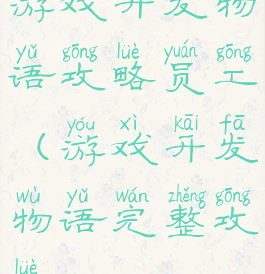 游戏开发物
yǔ gōng lüè yuán gōng
语攻略员工
yóu xì kāi fā
（游戏开发
wù yǔ wán zhěng gōng
物语完整攻
lüè